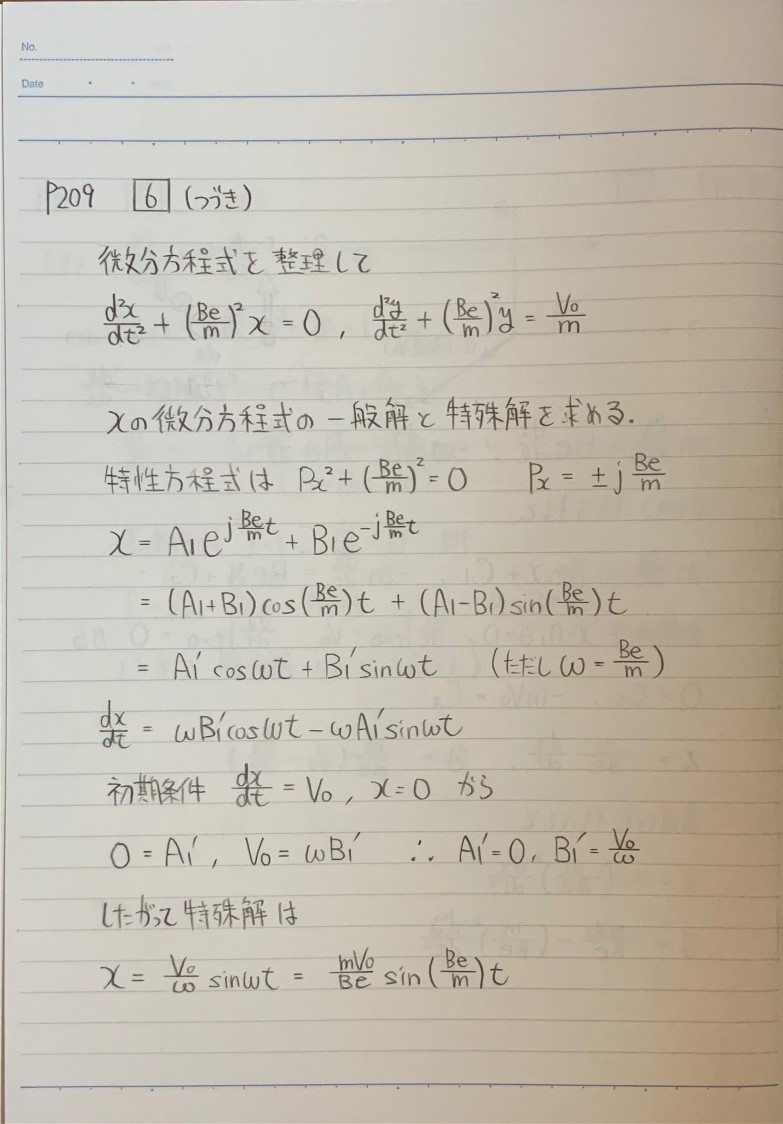 No.
Date
P209 6 (つづき)
微分方程式を整理して
d²x/dt² + (Be/m)² x = 0 , d²y/dt² + (Be/m)² y = V₀/m
xの微分方程式の一般解と特殊解を求める.
特性方程式は Px² + (Be/m)² = 0 Px = ± j Be/m
x = A₁e^(j Be/m t) + B₁e^(-j Be/m t)
= (A₁+B₁) cos(Be/m)t + (A₁-B₁) sin(Be/m)t
= A₁′ cosωt + B₁′ sinωt (ただし ω = Be/m)
dx/dt = ωB₁′cosωt − ωA₁′sinωt
初期条件 dx/dt = V₀ , x=0 から
0 = A₁′ , V₀ = ωB₁′ ∴ A₁′=0, B₁′= V₀/ω
したがって特殊解は
x = V₀/ω sinωt = mV₀/Be sin(Be/m)t